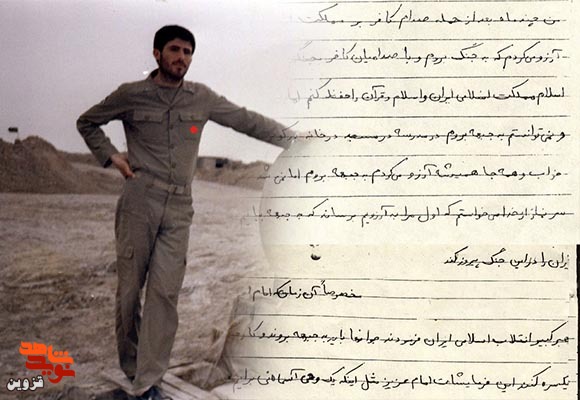 من چند ماه بعد از حمله صدام کافر بر مملکت
آرزو می‌کردم که به جنگ بروم و با صدامیان کافر بجنگ
اسلام مملکت اسلامی ایران و اسلام و قرآن را حفظ کنم اما
و نمی‌توانستم به جبهه بروم در مدرسه در مسجد در خانه
و همه جا همیشه آرزو می‌کردم به جبهه بروم اما نمی
سر نماز از خدا می‌خواستم که اول مرا به آرزویم برساند که جبهه
ایران را در این جنگ پیروز کند
مخصوصاً آن زمان که امام
کبیر انقلاب اسلامی ایران فرمودند جوانها باید به جبهه بروند و کار
یکسره کنند این فرمایشات امام عزیز مثل اینکه یک وحی آسمانی برایم
نوید شاهد
قزوین